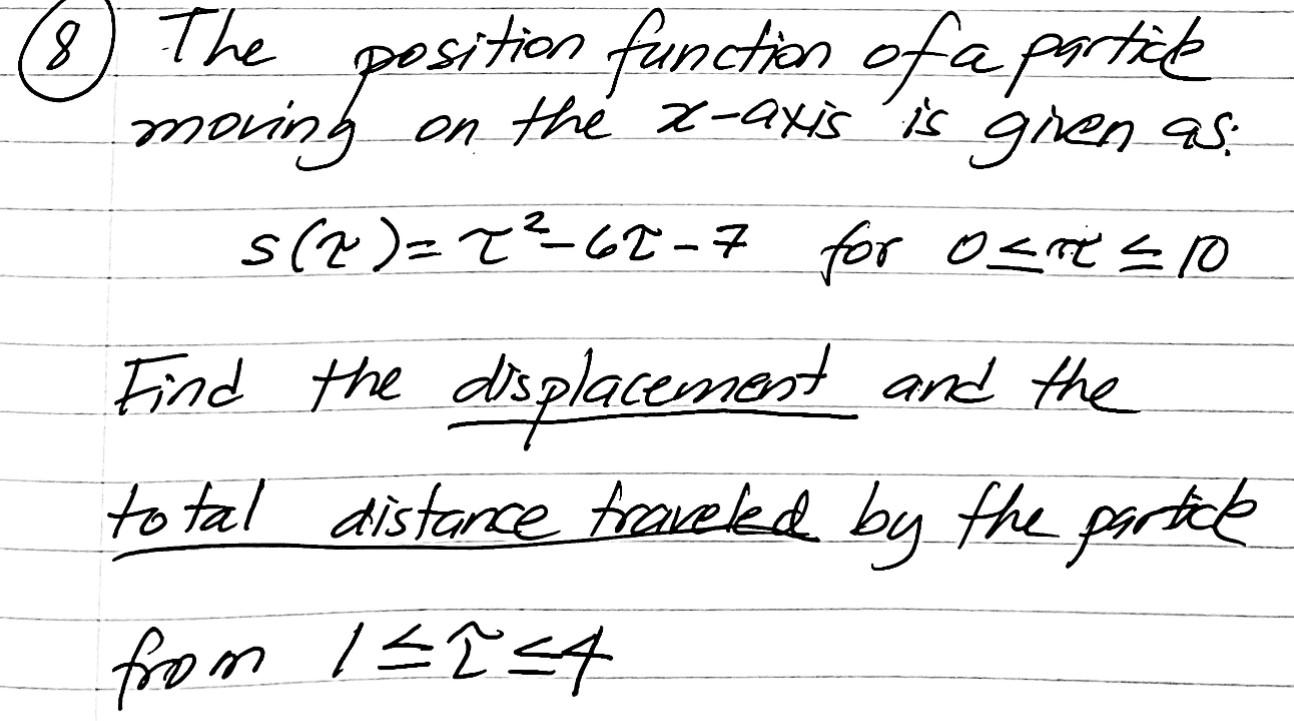 8 The position function of a particle
moving on the x-axis is given as:
s(t) = t²-6t-7 for 0 ≤ t ≤ 10
Find the displacement and the
total distance traveled by the particle
from 1 ≤ t ≤ 4